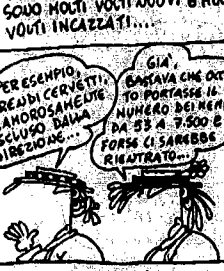 SONO MOLTI VOLTI NUOVI E MO
VOLTI INCAZZATI....
PER ESEMPIO,
PRENDI CERVETTI.
AMOROSAMENTE
ESCLUSO DALLA
DIREZIONE...
GIÀ,
BASTAVA CHE
TO PORTASSE IL
NUMERO DEI
DA 53 A 7.500 E
FORSE CI SAREBBE
RIENTRATO...